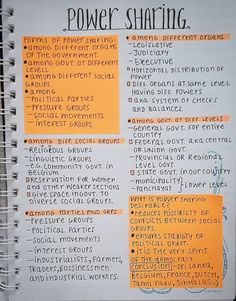 POWER SHARING.
FORMS OF POWER SHARING:
• AMONG DIFFERENT ORGANS
OF THE GOVERNMENT.
• AMONG GOVT. AT DIFFERENT
LEVELS
• AMONG DIFFERENT SOCIAL
GROUPS
• AMONG
– POLITICAL PARTIES
– PRESSURE GROUPS
– SOCIAL MOVEMENTS
– INTEREST GROUPS
• AMONG DIFF. SOCIAL GROUPS
– RELIGIOUS GROUPS
– LINGUISTIC GROUPS
EG. COMMUNITY GOVT. IN
BELGIUM
RESERVATION FOR WOMEN
AND OTHER WEAKER SECTIONS
GIVE SPACE IN GOVT. TO
DIVERSE SOCIAL GROUPS.
• AMONG PARTIES AND
– PRESSURE GROUPS
– POLITICAL PARTIES
– SOCIAL MOVEMENTS
– INTEREST GROUPS
– INDUSTRIALISTS, FARMERS,
TRADERS, BUSINESSMEN
AND INDUSTRIAL WORKERS.
• AMONG DIFFERENT ORGANS
– LEGISLATIVE
– JUDICIARY
– EXECUTIVE
HORIZONTAL DISTRIBUTION OF
POWER
DIFF. ORGANS AT SAME LEVEL
HAVE DIFF. POWERS
A.K.A SYSTEM OF CHECKS
AND BALANCES.
• AMONG GOVT. AT DIFF LEVELS
GENERAL GOVT. FOR ENTIRE
COUNTRY
FEDERAL GOVT. A.K.A CENTRAL
OR UNION GOVT. IN
– PROVINCIAL OR REGIONAL
LEVEL GOVT.
(STATE GOVT. IN OUR COUNTRY)
– MUNICIPALITY
– PANCHAYAT
LOWER LEVEL
WHY IS POWER SHARING
DESIRABLE?
• REDUCES POSSIBILITY OF
CONFLICTS BETWEEN SOCIAL
GROUPS.
• ENSURES STABILITY OF
POLITICAL ORDER.
• IT IS THE VERY SPIRIT
OF THE DEMOCRACY
CONCLUSION: SRI LANKA,
BELGIUM, FRANCE, DUTCH,
TAMIL NADU, SINHALAS